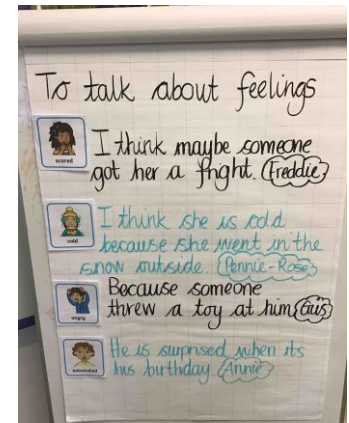 To talk about feelings
scared
I think maybe someone
got her a fright. (Freddie)
cold
I think she is cold
because she went in the
snow outside. (Pennie-Rose)
angry
Because someone
threw a toy at him (Gus)
astonished
He is surprised when its
his birthday (Annie)